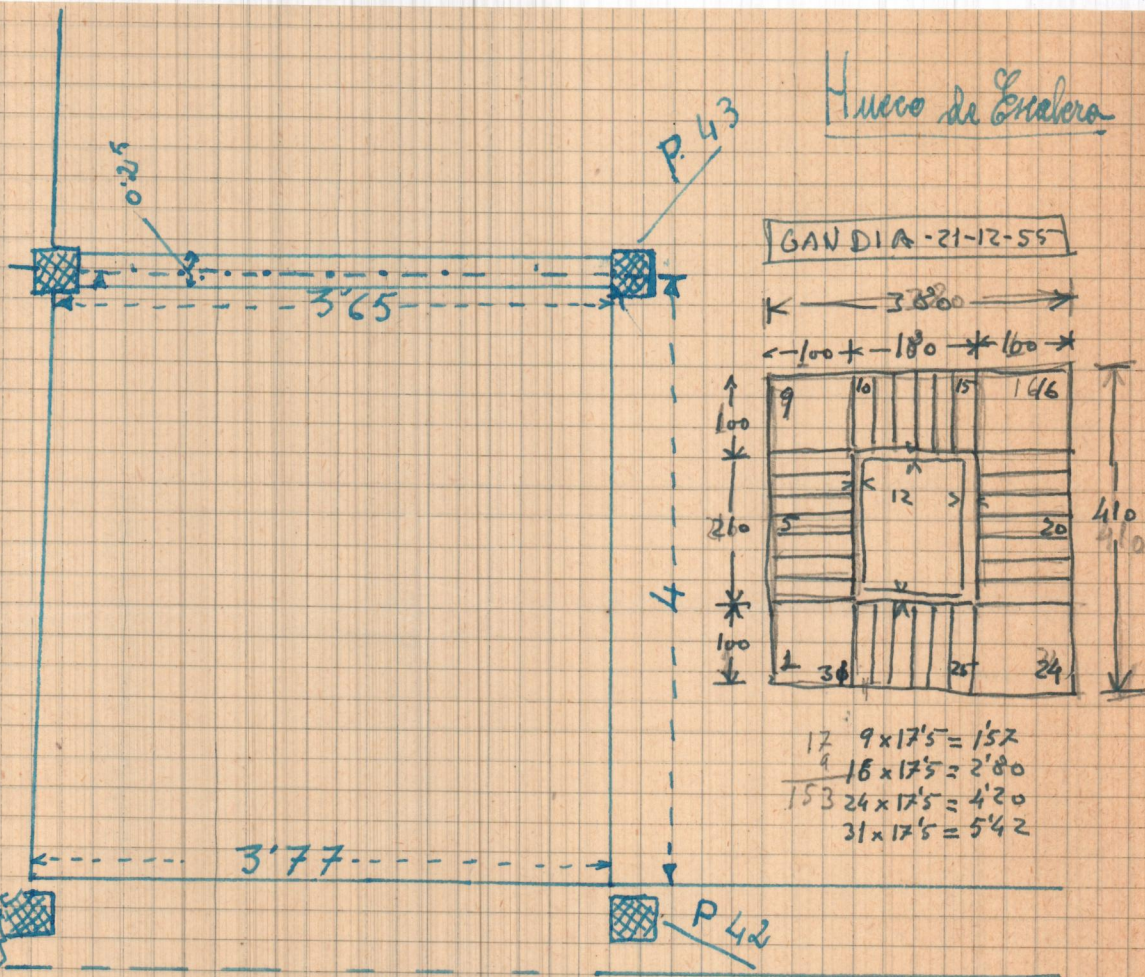 Hueco de Escalera
P. 43
0'25
3'65
GANDIA -21-12-55
100 180 100
9 10 15 16
100
12
210 5 20 410
410
4
100
1 25 24
17 9 x 17'5 = 1'57
9 16 x 17'5 = 2'80
153 24 x 17'5 = 4'20
31 x 17'5 = 5'42
3'77
P 42